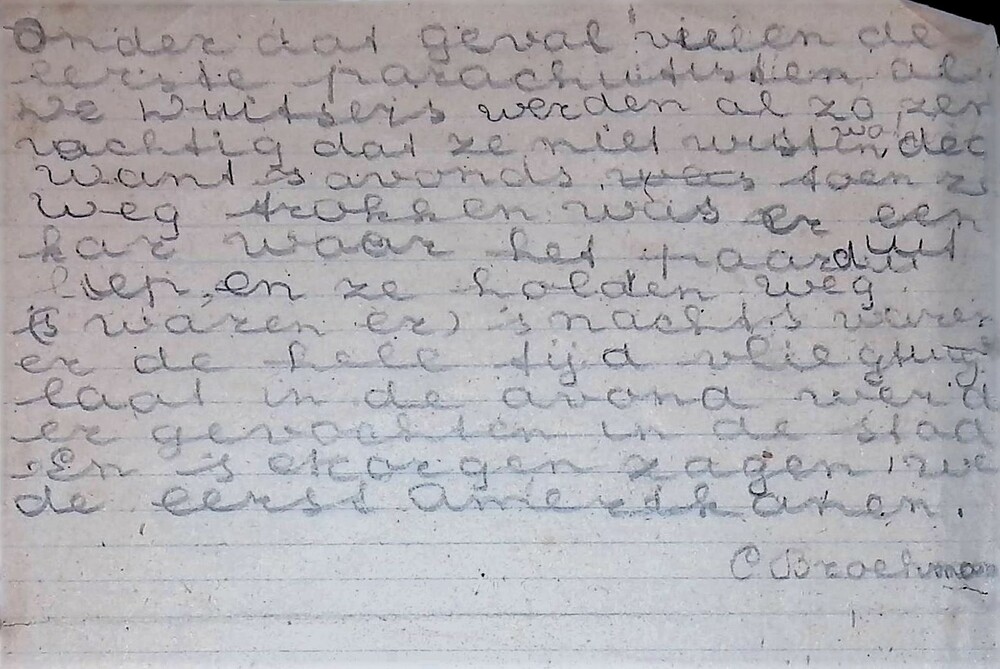 Onder dat geval vielen de
eerste parachutisten al
De Duitsers werden al zo zen
wachtig dat ze niet wisten wa dee
Want 's avonds was toen ze
weg trokken was er een
kar waar het paard uit
liep, en ze holden weg.
(s waren er) 's nachts waren
er de hele tijd vliegtuige
laat in de avond werd
er gevochten in de stad
En 's morgen zagen we
de eerst Amerikanen.
C Broekman